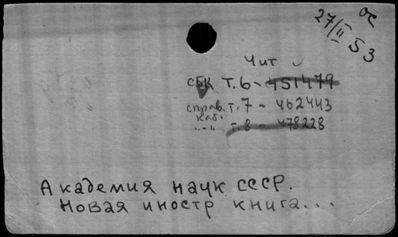 27/II 53
Чит
сбк т.6 - 451479
справ. т.7 - 462443
каб.
"-" т.8 - 478228
Академия наук СССР.
Новая иностр книга...